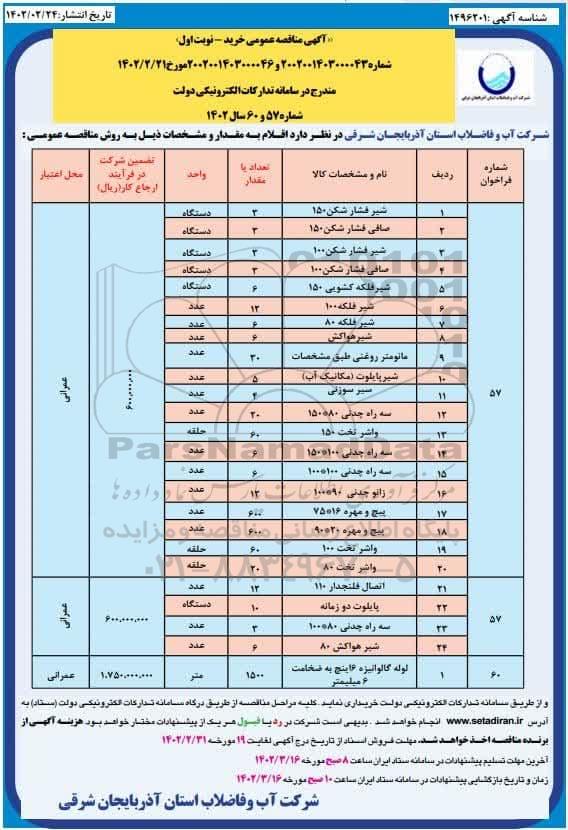 شناسه آگهی: ۱۴۹۶۲۰۱
تاریخ انتشار: ۱۴۰۲/۰۲/۲۴
«آگهی مناقصه عمومی خرید – نوبت اول»
شماره ۲۰۰۲۰۰۱۴۰۳۰۰۰۰۴۳ و ۲۰۰۲۰۰۱۴۰۳۰۰۰۰۴۶ مورخ ۱۴۰۲/۲/۲۱
مندرج در سامانه تدارکات الکترونیکی دولت
شماره ۵۷ و ۶۰ سال ۱۴۰۲
شرکت آب و فاضلاب استان آذربایجان شرقی
شرکت آب و فاضلاب استان آذربایجان شرقی در نظر دارد اقلام به مقدار و مشخصات ذیل به روش مناقصه عمومی :
شماره فراخوان ردیف نام و مشخصات کالا تعداد یا مقدار واحد تضمین شرکت در فرآیند ارجاع کار(ریال) محل اعتبار
۵۷ ۱ شیر فشار شکن ۱۵۰ ۳ دستگاه ۶۰۰,۰۰۰,۰۰۰ عمرانی
۲ صافی فشار شکن ۱۵۰ ۳ دستگاه
۳ شیر فشار شکن ۱۰۰ ۳ دستگاه
۴ صافی فشار شکن ۱۰۰ ۳ دستگاه
۵ شیرفلکه کشویی ۱۵۰ ۶ دستگاه
۶ شیر فلکه ۱۰۰ ۱۲ عدد
۷ شیر فلکه ۸۰ ۶ عدد
۸ شیرهواکش ۶ عدد
۹ مانومتر روغنی طبق مشخصات ۳۰ عدد
۱۰ شیرپایلوت (مکانیک آب) ۵ عدد
۱۱ شیر سوزنی ۴ عدد
۱۲ سه راه چدنی ۸۰*۱۵۰ ۲۰ عدد
۱۳ واشر تخت ۱۵۰ ۶۰ حلقه
۱۴ سه راه چدنی ۱۰۰*۱۵۰ ۶ عدد
۱۵ سه راه چدنی ۱۰۰*۱۰۰ ۶ عدد
۱۶ زانو چدنی ۹۰*۱۰۰ ۱۲ عدد
۱۷ پیچ و مهره ۱۶*۷۵ ۶۰۰ عدد
۱۸ پیچ و مهره ۲۰*۹۰ ۶۰۰ عدد
۱۹ واشر تخت ۱۰۰ ۶۰ حلقه
۲۰ واشر تخت ۸۰ ۲۰ حلقه
۵۷ ۲۱ اتصال فلنجدار ۱۱۰ ۱۲ عدد ۶۰۰,۰۰۰,۰۰۰ عمرانی
۲۲ پایلوت دو زمانه ۱۰ دستگاه
۲۳ سه راه چدنی ۸۰*۱۰۰ ۳ عدد
۲۴ شیر هواکش ۸۰ ۶ عدد
۶۰ ۱ لوله گالوانیزه ۶اینچ به ضخامت ۶ میلیمتر ۱۵۰۰ متر ۱,۷۵۰,۰۰۰,۰۰۰ عمرانی
ParsNamadData
مرکز فرآوری اطلاعات پارس نماد داده ها
پایگاه اطلاع رسانی مناقصه و مزایده
۰۲۱-۸۸۳۴۹۶۷۰-۵
و از طریق سامانه تدارکات الکترونیکی دولت خریداری نماید . کلیه مراحل مناقصه از طریق درگاه سامانه تدارکات الکترونیکی دولت (ستاد) به
آدرس www.setadiran.ir انجام خواهد شد . بدیهی است شرکت در رد یا قبول هر یک از پیشنهادات مختار خواهد بود. هزینه آگهی از
برنده مناقصه اخذ خواهد شد. مهلت فروش اسناد از تاریخ درج آگهی لغایت ۱۹ مورخه ۱۴۰۲/۲/۳۱
آخرین مهلت تسلیم پیشنهادات در سامانه ستاد ایران ساعت ۸ صبح مورخه ۱۴۰۲/۳/۱۶
زمان و تاریخ بازگشایی پیشنهادات در سامانه ستاد ایران ساعت ۱۰ صبح مورخه ۱۴۰۲/۳/۱۶
شرکت آب وفاضلاب استان آذربایجان شرقی